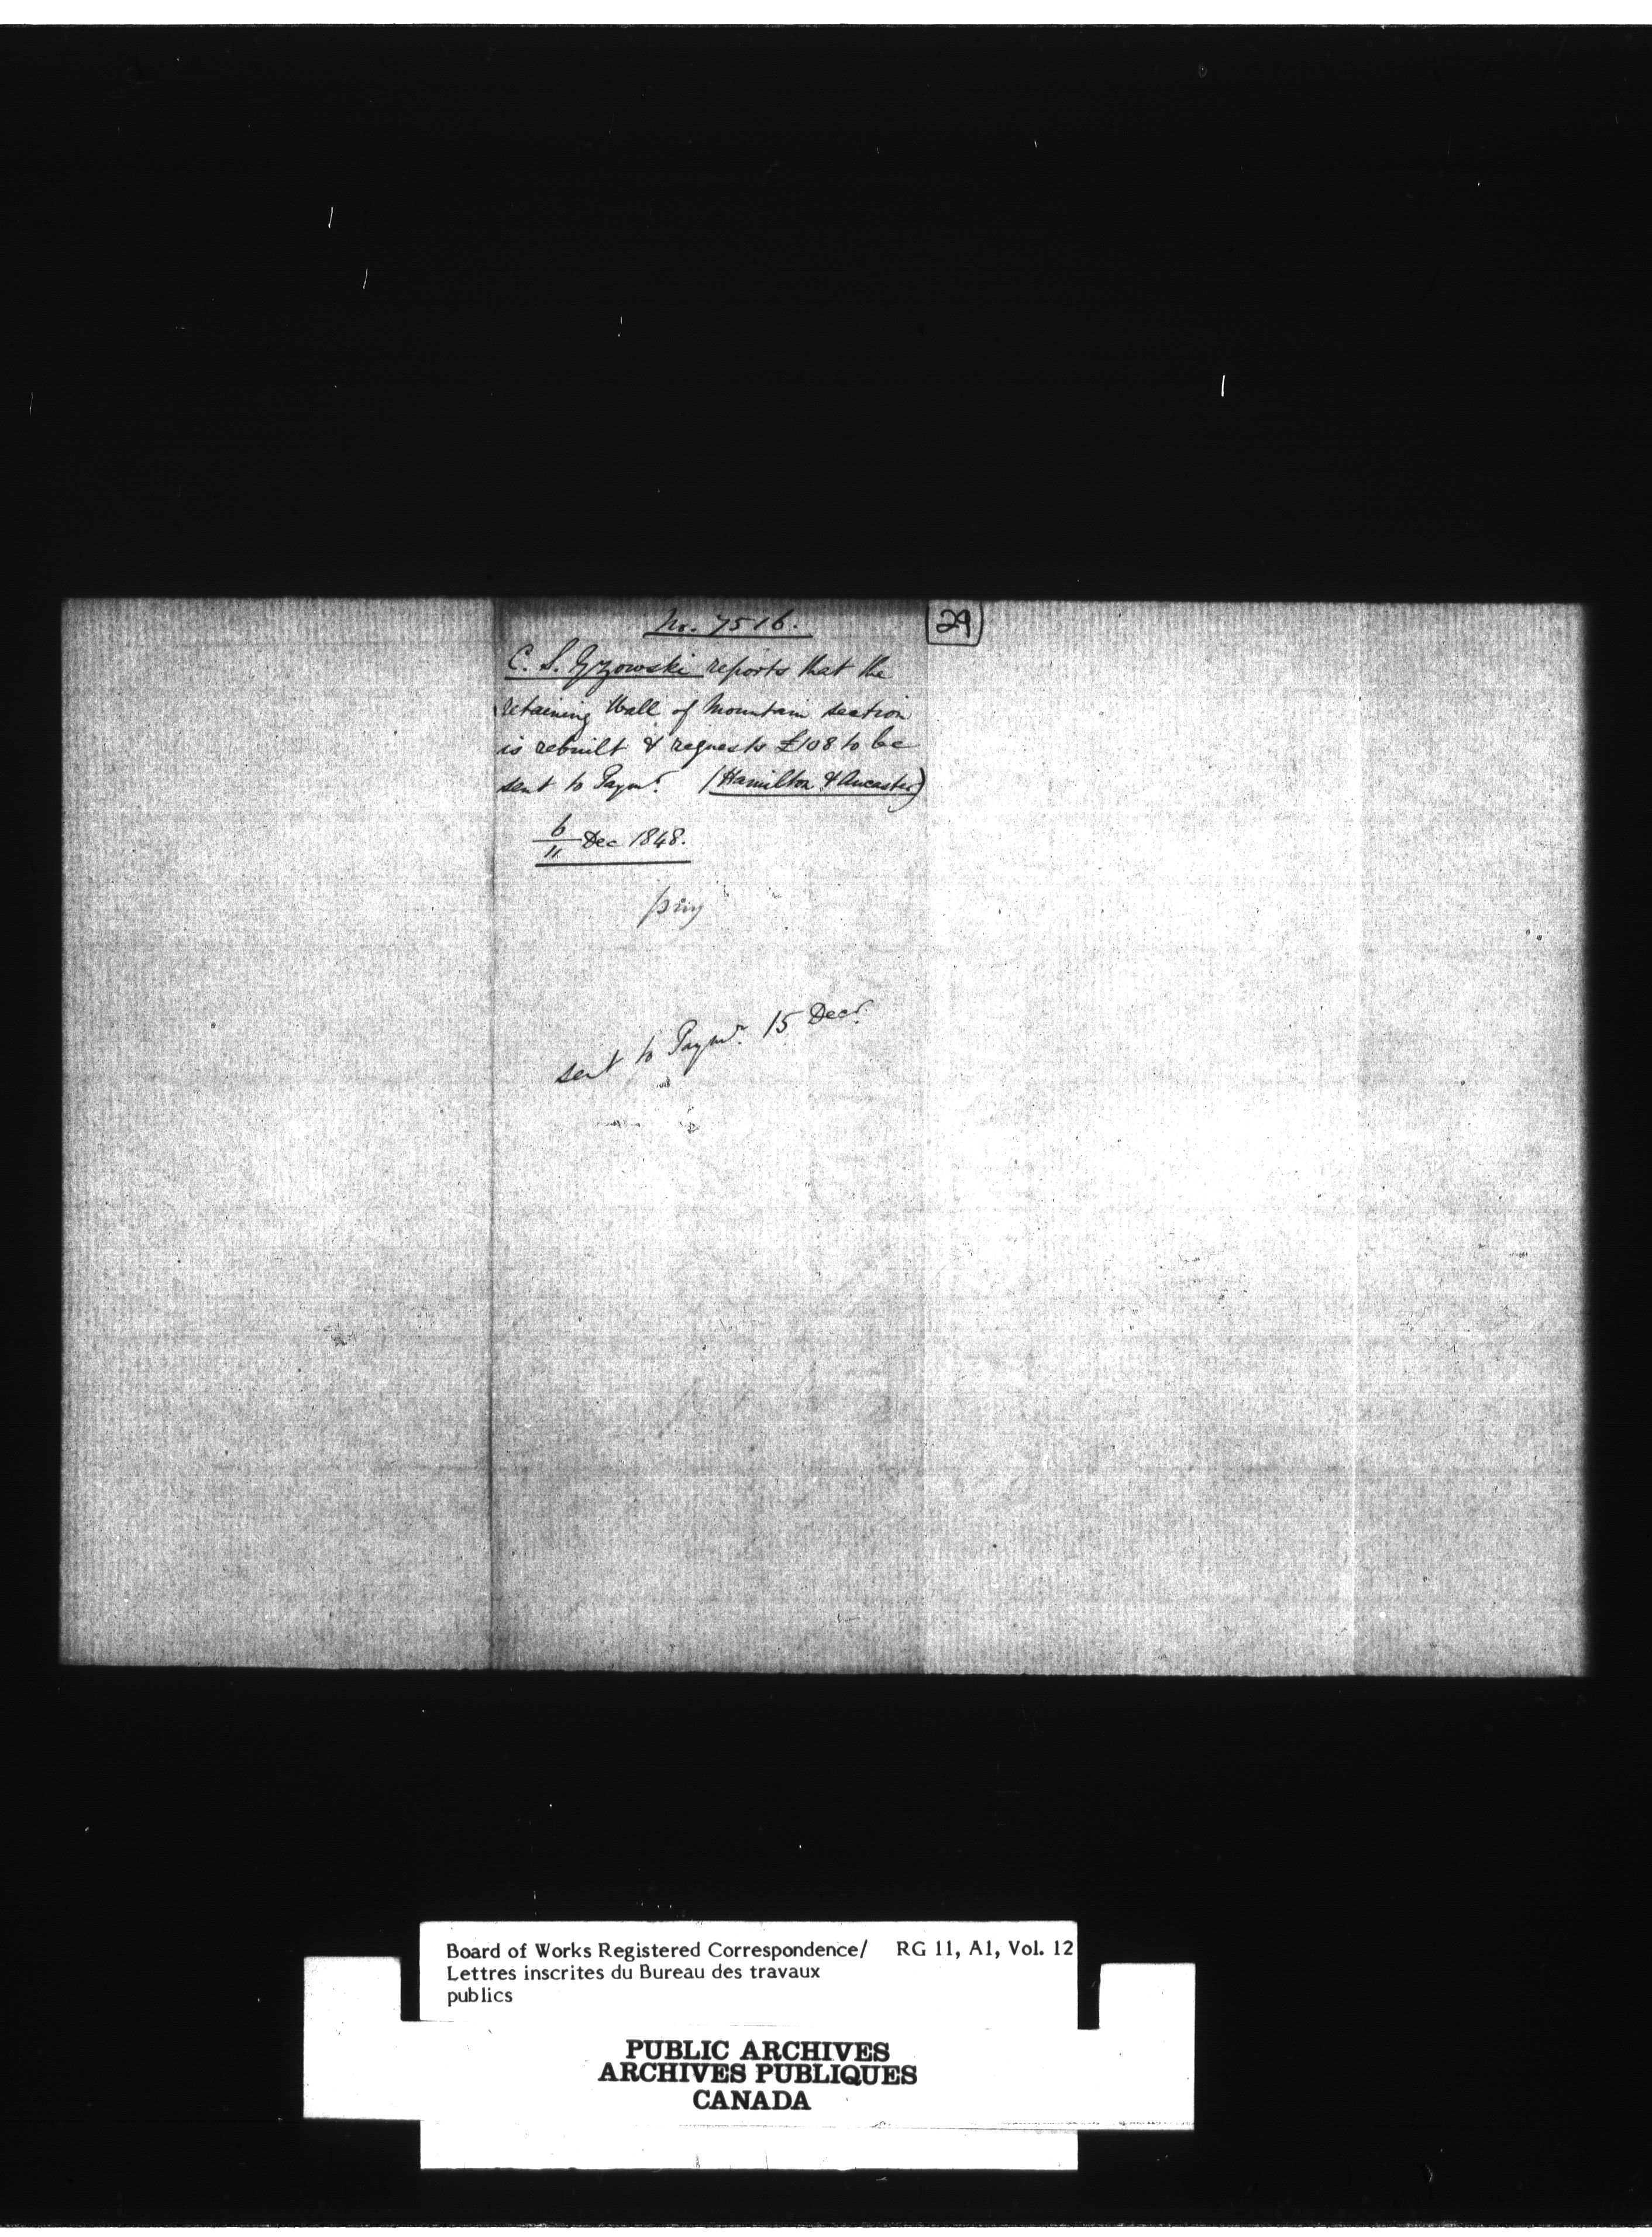 No. 7516.
29
C. S. Gzowski reports that the
retaining Wall of Mountain section
is rebuilt & requests £108 to be
sent to Paymr. (Hamilton & Ancaster)
6/11 Dec 1848.
sent to Paymr. 15 Decr.
Board of Works Registered Correspondence/ RG 11, A1, Vol. 12
Lettres inscrites du Bureau des travaux
publics
PUBLIC ARCHIVES
ARCHIVES PUBLIQUES
CANADA